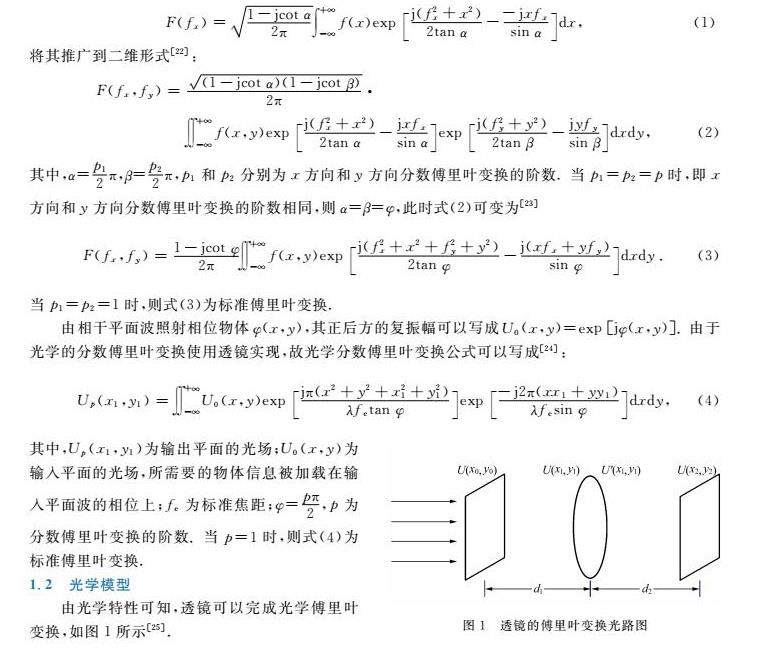 F(fₓ) = √((1－jcot α)/2π) ∫₋∞⁺∞ f(x)exp [j(fₓ²＋x²)/2tan α － －jxfₓ/sin α]dx, (1)
将其推广到二维形式[22]:
F(fₓ,f_y) = √((1－jcot α)(1－jcot β))/2π •
∬₋∞⁺∞ f(x,y)exp [j(fₓ²＋x²)/2tan α － jxfₓ/sin α]exp [j(f_y²＋y²)/2tan β － jyf_y/sin β]dxdy, (2)
其中,α=p₁/2 π,β=p₂/2 π,p₁ 和 p₂ 分别为 x 方向和 y 方向分数傅里叶变换的阶数. 当 p₁=p₂=p 时,即 x
方向和 y 方向分数傅里叶变换的阶数相同,则 α=β=φ,此时式(2)可变为[23]
F(fₓ,f_y) = (1－jcot φ)/2π ∬₋∞⁺∞ f(x,y)exp [j(fₓ²＋x²＋f_y²＋y²)/2tan φ － j(xfₓ＋yf_y)/sin φ]dxdy. (3)
当 p₁=p₂=1 时,则式(3)为标准傅里叶变换.
由相干平面波照射相位物体 φ(x,y),其正后方的复振幅可以写成 U₀(x,y)=exp [jφ(x,y)]. 由于
光学的分数傅里叶变换使用透镜实现,故光学分数傅里叶变换公式可以写成[24]:
Uₚ(x₁,y₁) = ∬₋∞⁺∞ U₀(x,y)exp [jπ(x²＋y²＋x₁²＋y₁²)/λfₑtan φ]exp [－j2π(xx₁＋yy₁)/λfₑsin φ]dxdy, (4)
其中,Uₚ(x₁,y₁)为输出平面的光场;U₀(x,y)为
输入平面的光场,所需要的物体信息被加载在输
入平面波的相位上;fₑ 为标准焦距;φ=pπ/2,p 为
分数傅里叶变换的阶数. 当 p=1 时,则式(4)为
标准傅里叶变换.
1.2 光学模型
由光学特性可知,透镜可以完成光学傅里叶
变换,如图 1 所示[25].
U(x₀,y₀) U(x₁,y₁) U'(x₁,y₁) U(x₂,y₂)
d₁ d₂
图 1 透镜的傅里叶变换光路图